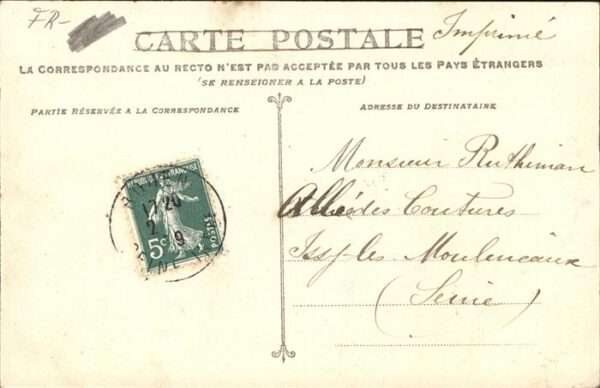 FR-
CARTE POSTALE
Imprimé
LA CORRESPONDANCE AU RECTO N'EST PAS ACCEPTÉE PAR TOUS LES PAYS ÉTRANGERS
(SE RENSEIGNER A LA POSTE)
PARTIE RÉSERVÉE A LA CORRESPONDANCE
ADRESSE DU DESTINATAIRE
Monsieur Ruthiman
Allée des Coutures
Issy-les Moulineaux
(Seine)
REPUBLIQUE FRANÇAISE
17 20
2 9
5c
POSTES